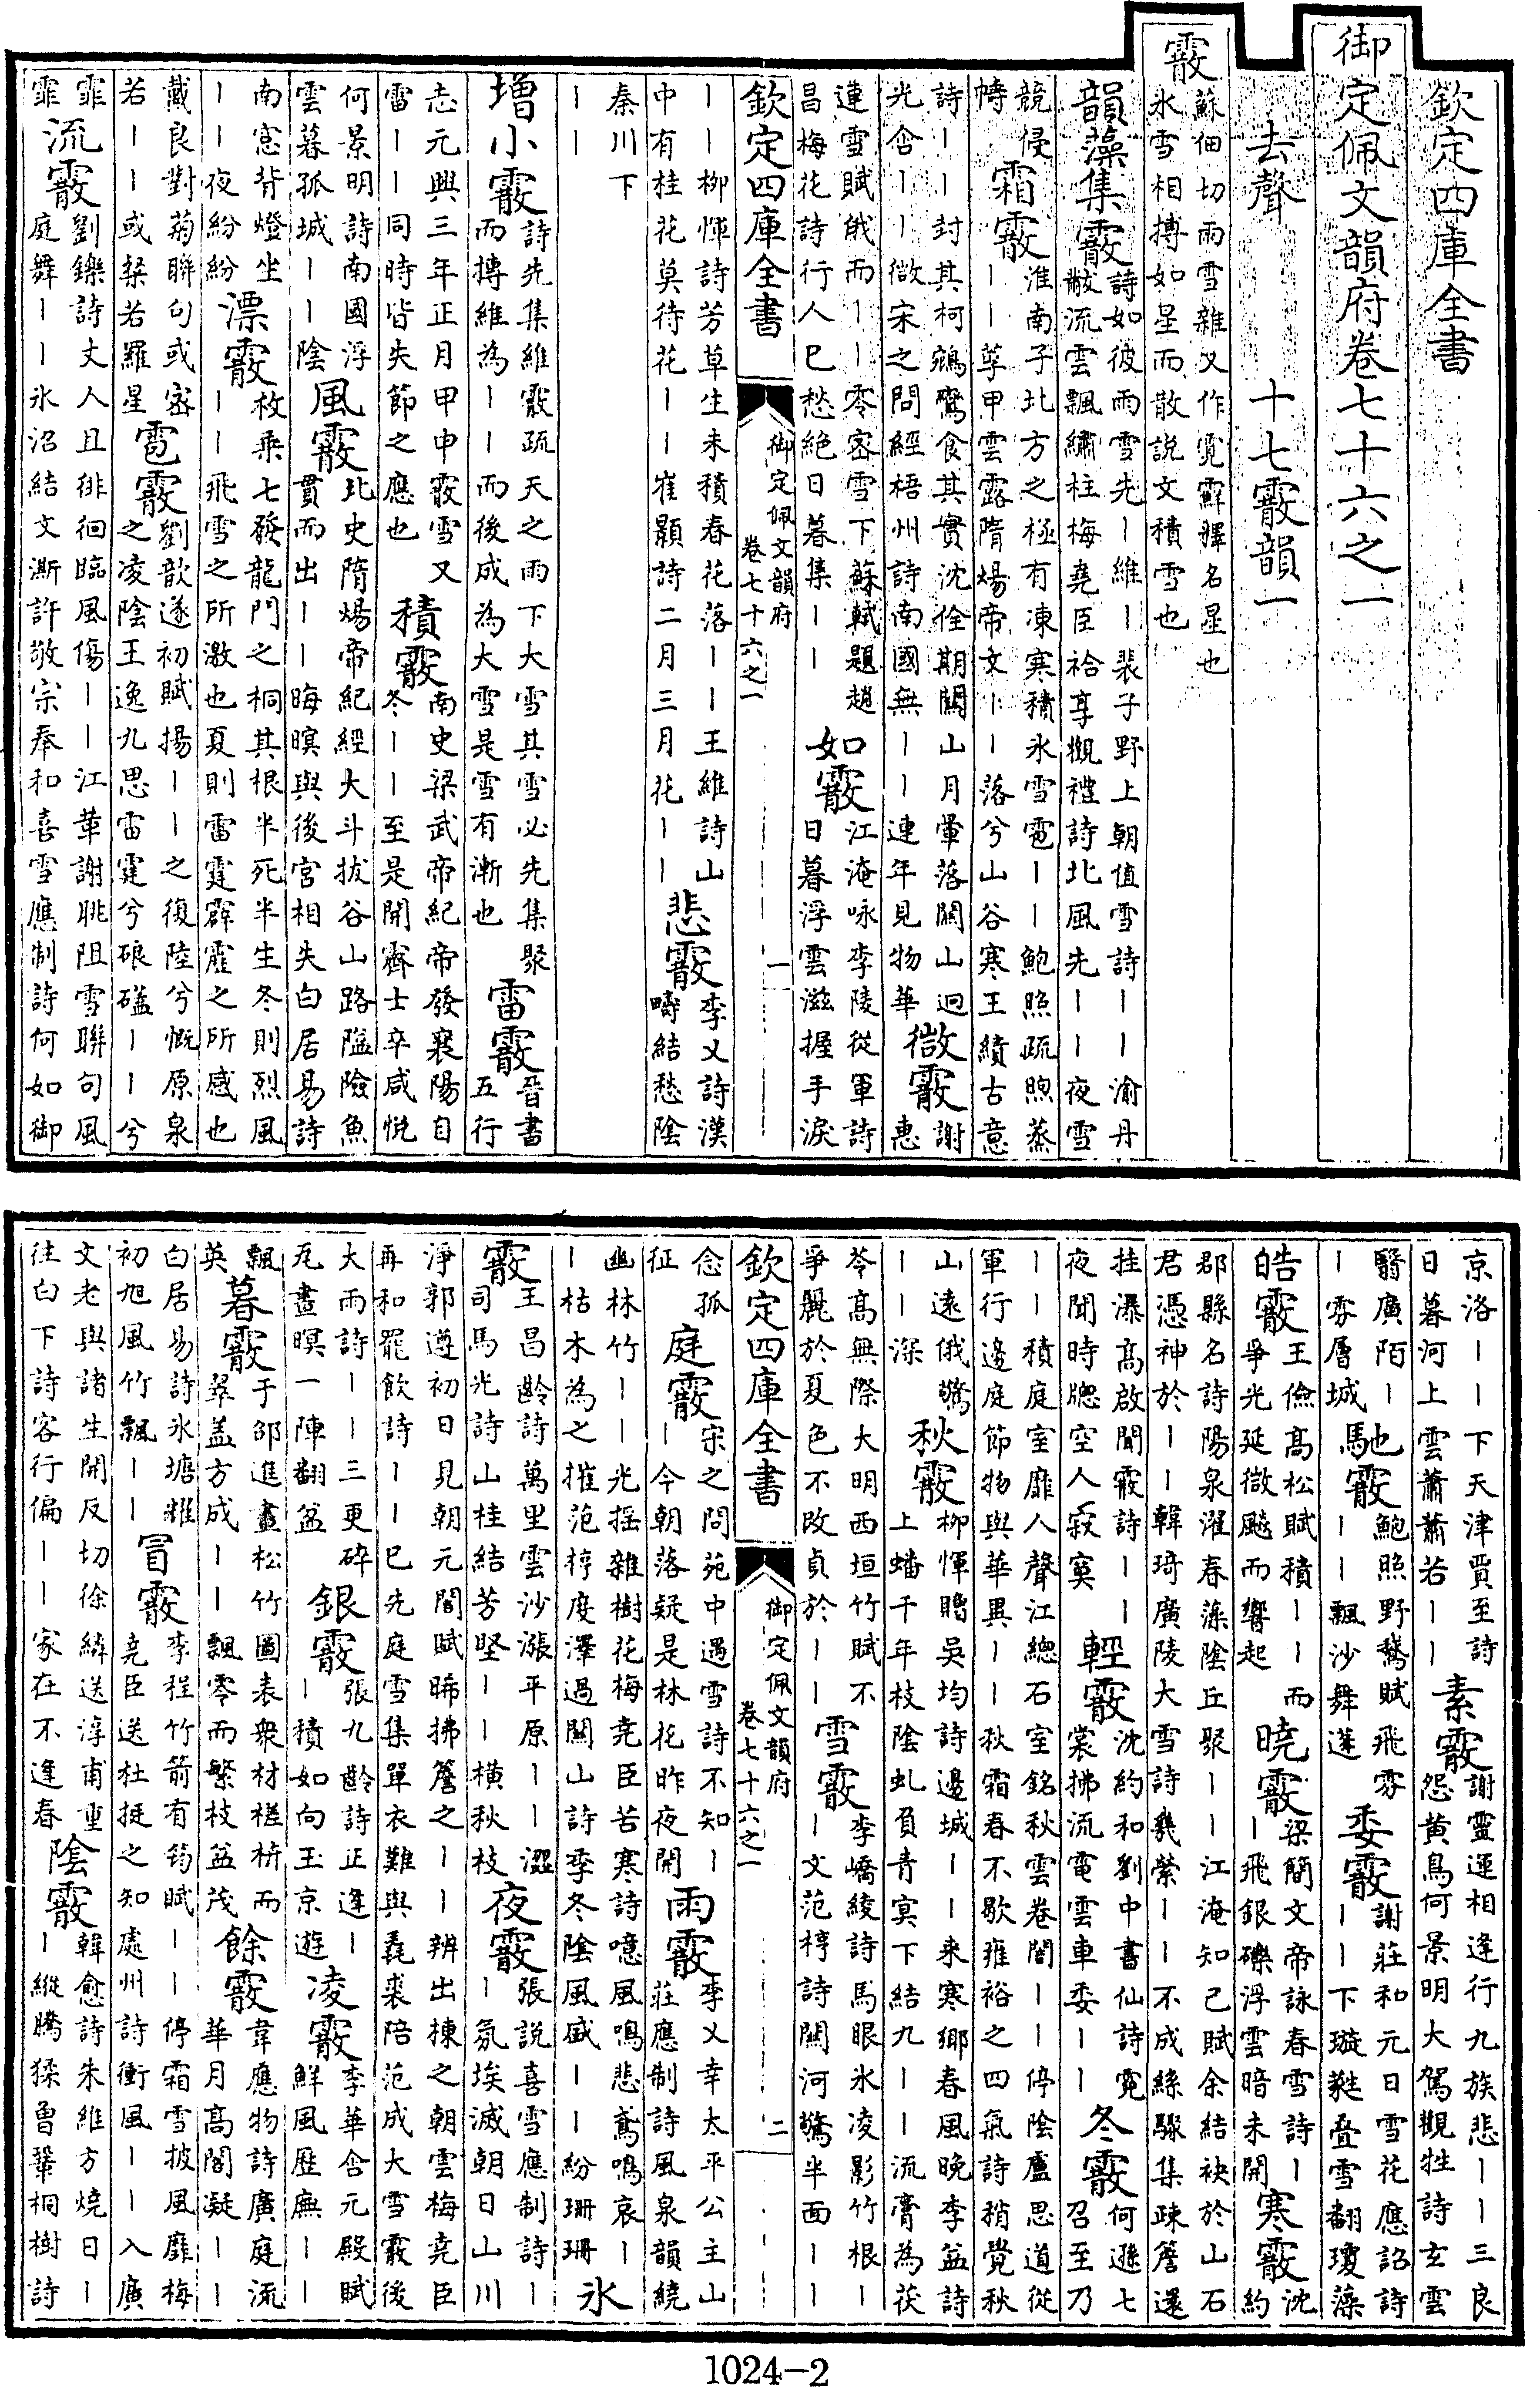 欽定四庫全書
御定佩文韻府卷七十六之一
去聲　十七霰韻一
霰
蘇佃切雨雪雜又作霓霹釋名星也
氷雪相摶如星而散說文積雪也
韻藻集霰
詩如彼雨雪先丨維丨裴子野上朝值雪詩丨丨渝丹
黻流雲飄繡柱梅堯臣祫享觀禮詩北風先丨丨夜雪
競侵
幬
霜霰
淮南子北方之極有凍寒積氷雪雹丨丨鮑照疏煦蒸
丨丨莩甲雲露隋煬帝文丨丨落兮山谷寒王績古意
詩丨丨封其柯鵷鸞食其實沈佺期關山月暈落關山迥
光含丨丨微宋之問經梧州詩南國無丨丨連年見物華
微霰
謝
惠
連雪賦俄而丨丨零密雪下蘇軾題趙
昌梅花詩行人已愁絶日暮集丨丨
如霰
江淹咏李陵從軍詩
日暮浮雲滋握手淚
欽定四庫全書
御定佩文韻府
卷七十六之一
一
丨丨柳惲詩芳草生未積春花落丨丨王維詩山
中有桂花莫待花丨丨崔顥詩二月三月花丨丨
悲霰
李乂詩漢
疇結愁陰
秦川下
丨丨
增小霰
詩先集維霰疏天之雨下大雪其雪必先集聚
而摶維為丨丨而後成為大雪是雪有漸也
雷霰
晉書
五行
志元興三年正月甲申霰雪又
雷丨丨同時皆失節之應也
積霰
南史梁武帝紀帝發襄陽自
冬丨丨至是開霽士卒咸悅
何景明詩南國浮
雲暮孤城丨丨陰
風霰
北史隋煬帝紀經大斗拔谷山路隘險魚
貫而出丨丨晦暝與後宮相失白居易詩
南窻背燈坐
丨丨夜紛紛
漂霰
枚乘七發龍門之桐其根半死半生冬則烈風
丨丨飛雪之所激也夏則雷霆霹靂之所感也
戴良對菊聨句或密
若丨丨或粲若羅星
雹霰
劉歆遂初賦揚丨丨之復陸兮慨原泉
之凌陰王逸九思雷霆兮硠磕丨丨兮
霏
霏
流霰
劉鑠詩丈人且徘徊臨風傷丨丨江革謝朓阻雪聨句風
庭舞丨丨氷沼結文澌許敬宗奉和喜雪應制詩何如御
京洛丨丨下天津賈至詩
日暮河上雲蕭蕭若丨丨
素霰
謝靈運相逢行九族悲丨丨三良
怨黄鳥何景明大駕觀牲詩玄雲
翳廣陌丨
丨雰層城
馳霰
鮑照野鵞賦飛雰
丨丨飄沙舞蓬
委霰
謝莊和元日雪花應詔詩
丨丨下璇蕤疊雪翻瓊藻
皓霰
王儉高松賦積丨丨而
爭光延微飈而響起
曉霰
梁簡文帝詠春雪詩丨
丨飛銀礫浮雲暗未開
寒霰
沈
約
郡縣名詩陽泉濯春藻陰丘聚丨丨江淹知己賦余結袂於山石
君憑神於丨丨韓琦廣陵大雪詩幾縈丨丨不成絲驟集疎簷還
挂瀑高啟聞霰詩丨丨
夜聞時牕空人寂寞
輕霰
沈約和劉中書仙詩霓
裳拂流電雲車委丨丨
冬霰
何遜七
召至乃
丨丨積庭室靡人聲江總石室銘秋雲卷閣丨丨停陰盧思道從
軍行邊庭節物與華異丨丨秋霜春不歇雍裕之四氣詩稍覺秋
山遠俄驚
丨丨深
秋霰
柳惲贈吳均詩邊城丨丨來寒鄉春風晚李益詩
上蟠千年枝陰虬負青冥下結九丨丨流膏為茯
苓高無際大明西垣竹賦不
爭麗於夏色不改貞於丨丨
雪霰
李嶠綾詩馬眼氷凌影竹根丨
丨文范梈詩關河驚半面丨丨
欽定四庫全書
御定佩文韻府
卷七十六之一
二
念孤
征
庭霰
宋之問苑中遇雪詩不知丨
丨今朝落疑是林花昨夜開
雨霰
李乂幸太平公主山
莊應制詩風泉韻繞
幽林竹丨丨光揺雜樹花梅堯臣苦寒詩噫風鳴悲鳶鳴哀丨
丨枯木為之摧范梈度澤過關山詩季冬陰風盛丨丨紛珊珊
氷霰
王昌齡詩萬里雲沙漲平原丨丨澀
司馬光詩山桂結芳堅丨丨橫秋枝
夜霰
張說喜雪應制詩丨
丨氛埃滅朝日山川
淨郭遵初日見朝元閣賦晞拂簷之丨丨辨出棟之朝雲梅堯臣
再和罷飲詩丨丨已先庭雪集單衣難與毳裘陪范成大雪霰後
大雨詩丨丨三更碎
瓦晝暝一陣翻盆
銀霰
張九齡詩正逢丨
丨積如向玉京遊
凌霰
李華含元殿賦
鮮風歷廡丨丨
飄
英
暮霰
于邵進畫松竹圖表衆材槎枿而
翠盖方成丨丨飄零而繁枝益茂
餘霰
韋應物詩廣庭流
華月高閣凝丨丨
白居易詩氷塘耀
初旭風竹飄丨丨
冒霰
李程竹箭有筠賦丨丨停霜雪披風靡梅
堯臣送杜挺之知處州詩衝風丨丨入廣
文老與諸生開反切徐鱗送淳甫重
往白下詩客行偏丨丨家在不逢春
陰霰
韓愈詩朱維方燒日丨
丨縱騰猱魯鞏桐樹詩
1024-2